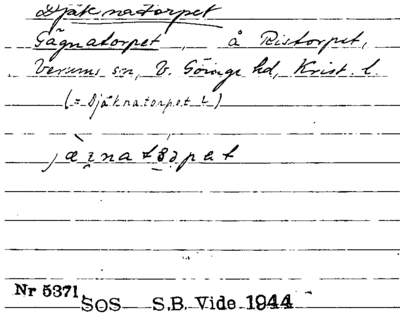 Djäknatorpet
Gägnatorpet, å Ristorpet,
Verums sn, V. Göinge hd, Krist. l.
(= Djäknatorpet L)
Nr 5371. SOS S.B. Vide 1944